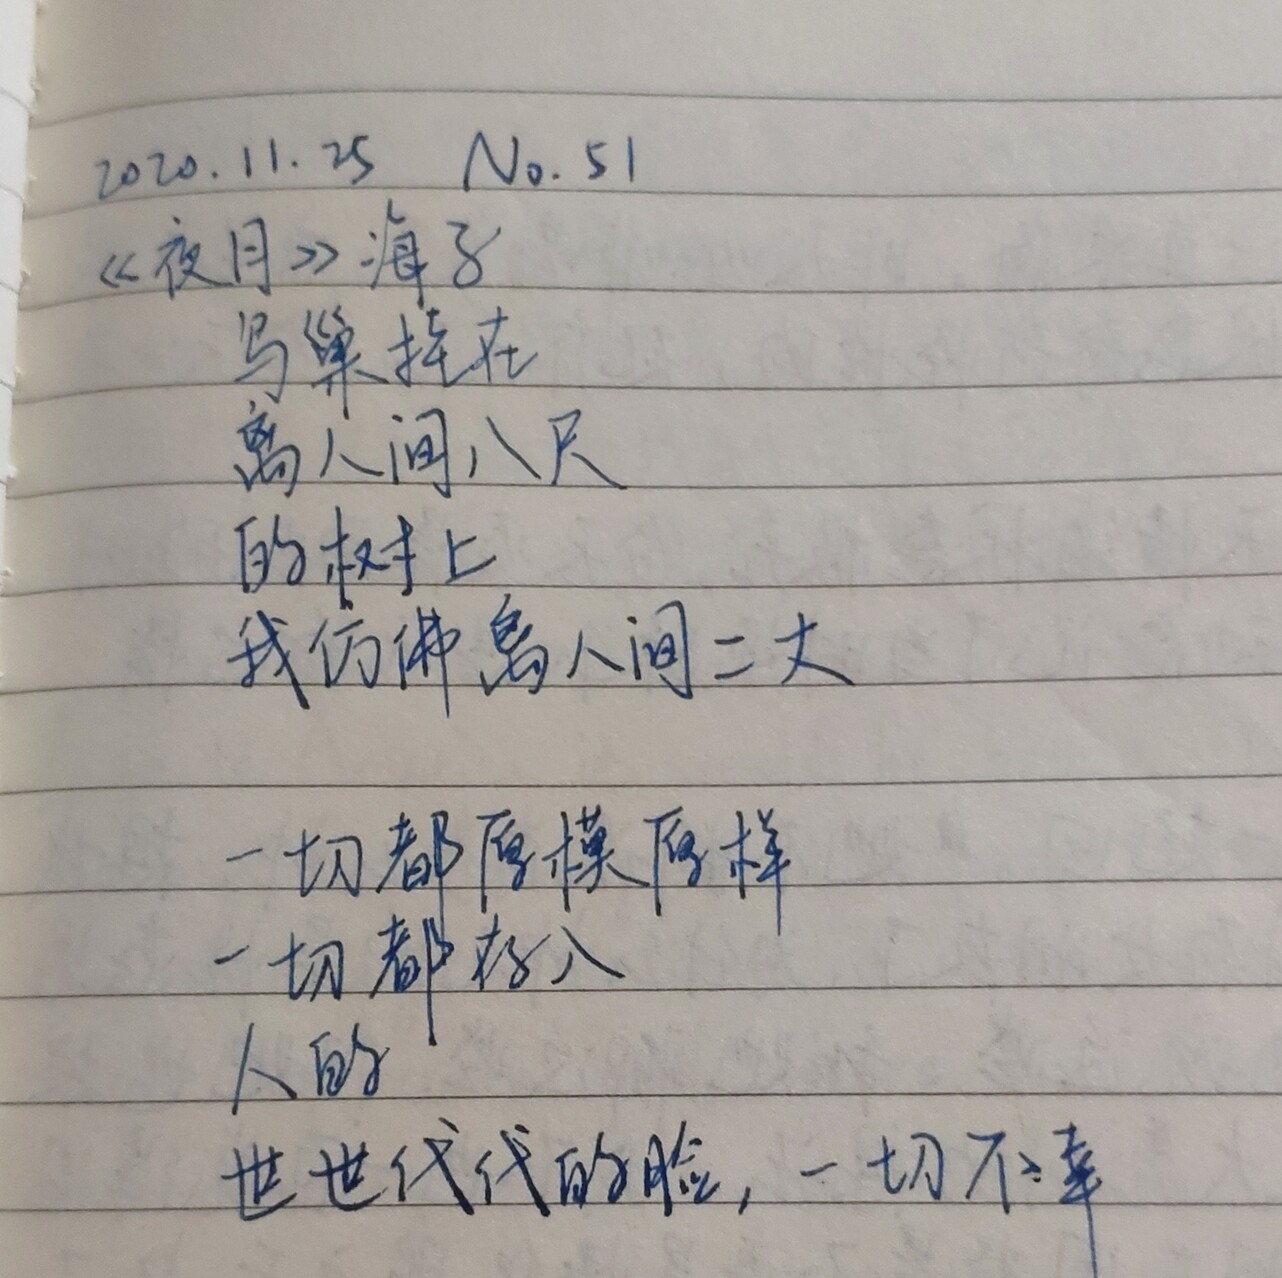 2020.11.25 No.51
《夜月》海子
鸟巢挂在
离人间八尺
的树上
我仿佛离人间二丈
一切都原模原样
一切都存入
人的
世世代代的脸，一切不幸